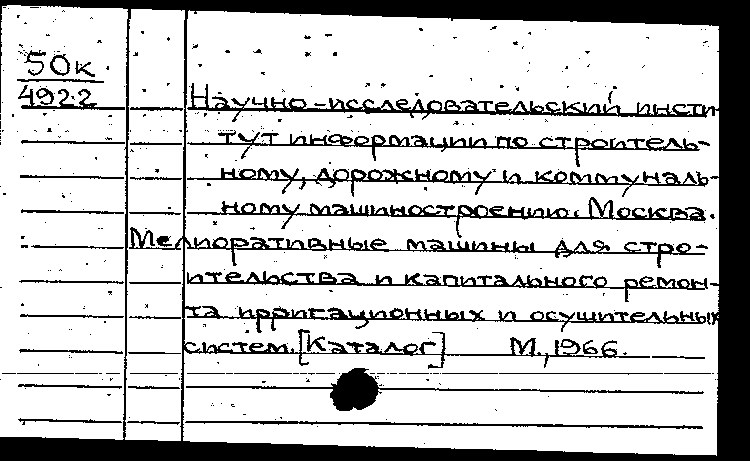 50к
4922
Научно-исследовательский инсти-
тут информации по строитель-
ному, дорожному и коммуналь-
ному машиностроению. Москва.
Мелиоративные машины для стро-
ительства и капитального ремон-
та ирригационных и осушительных
систем. [Каталог] М., 1966.